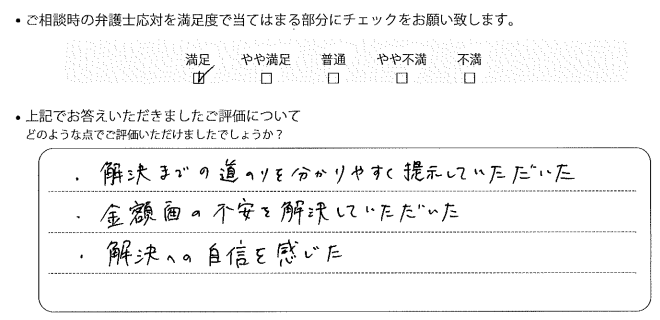 • ご相談時の弁護士応対を満足度で当てはまる部分にチェックをお願い致します。
満足 やや満足 普通 やや不満 不満
☑ ☐ ☐ ☐ ☐
• 上記でお答えいただきましたご評価について
どのような点でご評価いただけましたでしょうか？
・解決までの道のりを分かりやすく提示していただいた
・金額面の不安を解決していただいた
・解決への自信を感じた